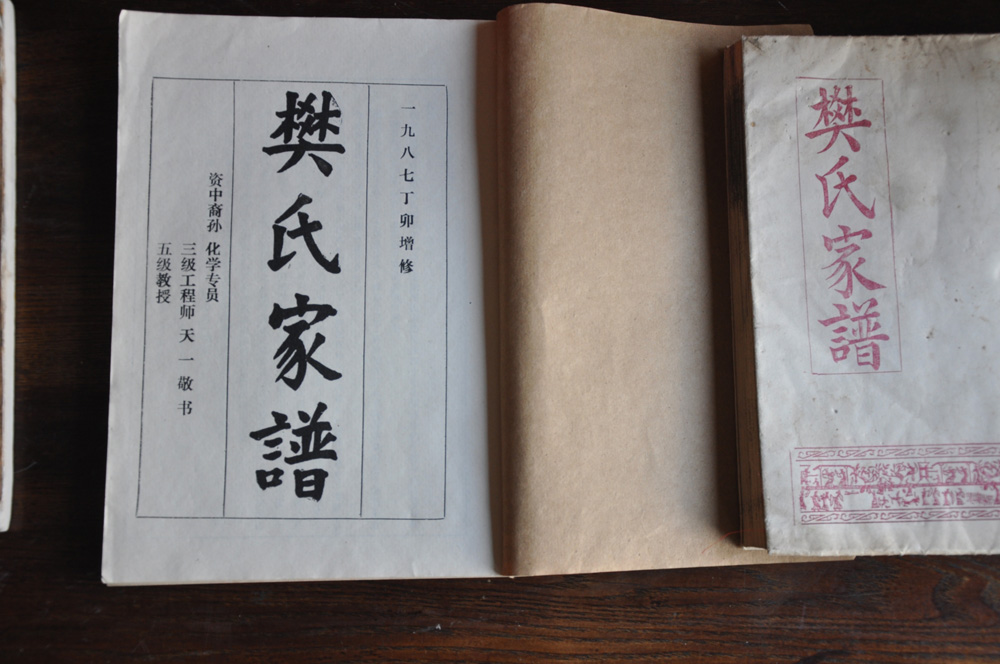 一九八七丁卯增修
樊氏家譜
资中裔孙
化学专员
三级工程师
五级教授
天一敬书
樊氏家譜